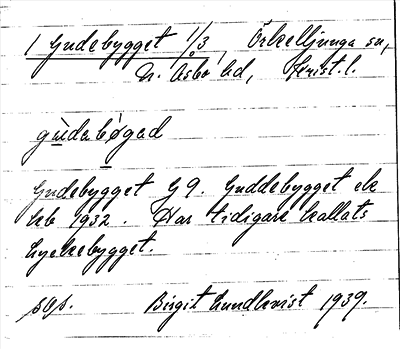 1 Gudebygget 1/3, Örkelljunga sn,
N. Åsbo hd, Krist. l.
gùdabøgad
Gudebygget G 9. Guddebygget ek
kb 1932. Har tidigare kallats
Lyckebygget.
Birgit Lundkvist 1939.